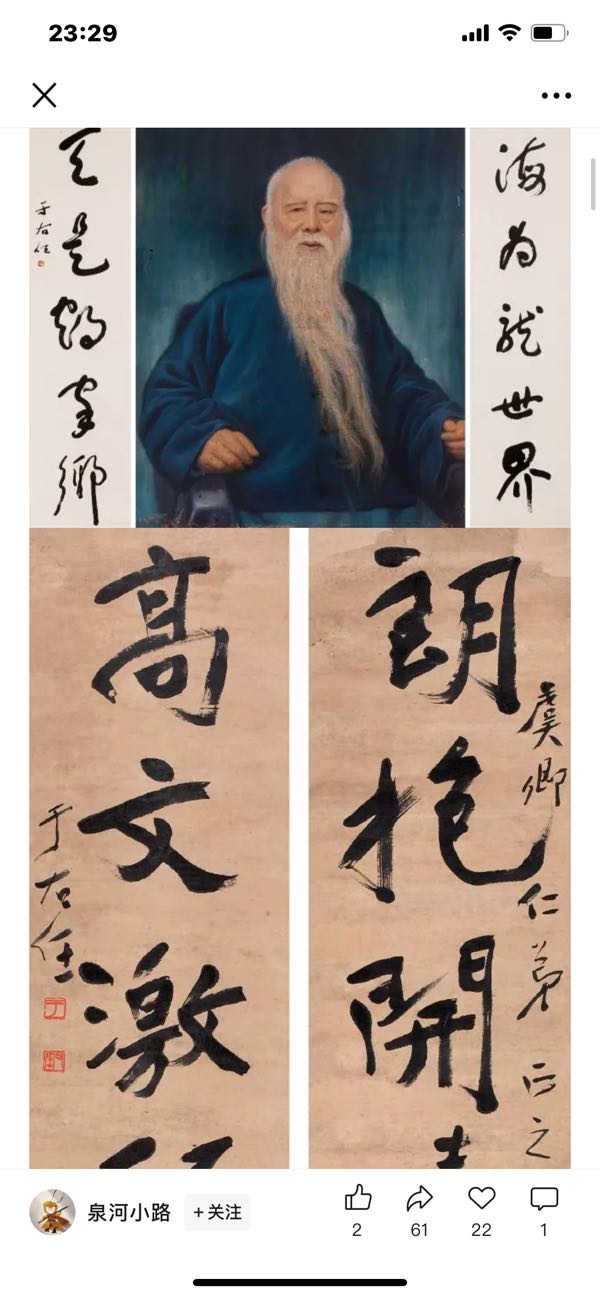 23:29
海为龙世界
天是鹤家乡
于右任
朗抱開
虞卿仁弟正之
高文激
于右任
泉河小路
+关注
2
61
22
1